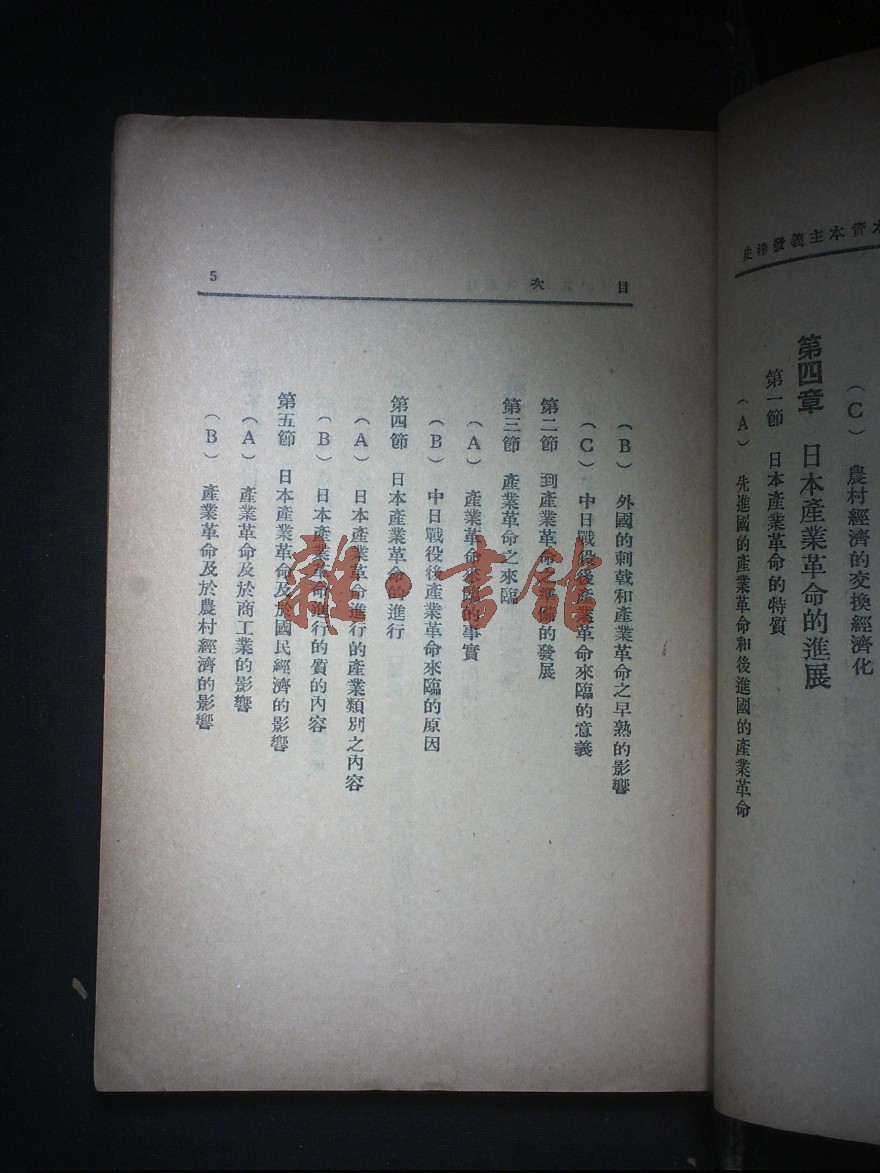 本資本主義發達史
（C）　農村經濟的交換經濟化
第四章　日本產業革命的進展
第一節　日本產業革命的特質
（A）　先進國的產業革命和後進國的產業革命
目　次　5
（B）　外國的刺戟和產業革命之早熟的影響
（C）　中日戰役後產業革命來臨的意義
第二節　到產業革命之準備的發展
第三節　產業革命之來臨
（A）　產業革命來臨的事實
（B）　中日戰役後產業革命來臨的原因
第四節　日本產業革命的進行
（A）　日本產業革命進行的產業類別之內容
（B）　日本產業革命進行的質的內容
第五節　日本產業革命及於國民經濟的影響
（A）　產業革命及於商工業的影響
（B）　產業革命及於農村經濟的影響
雜·書館